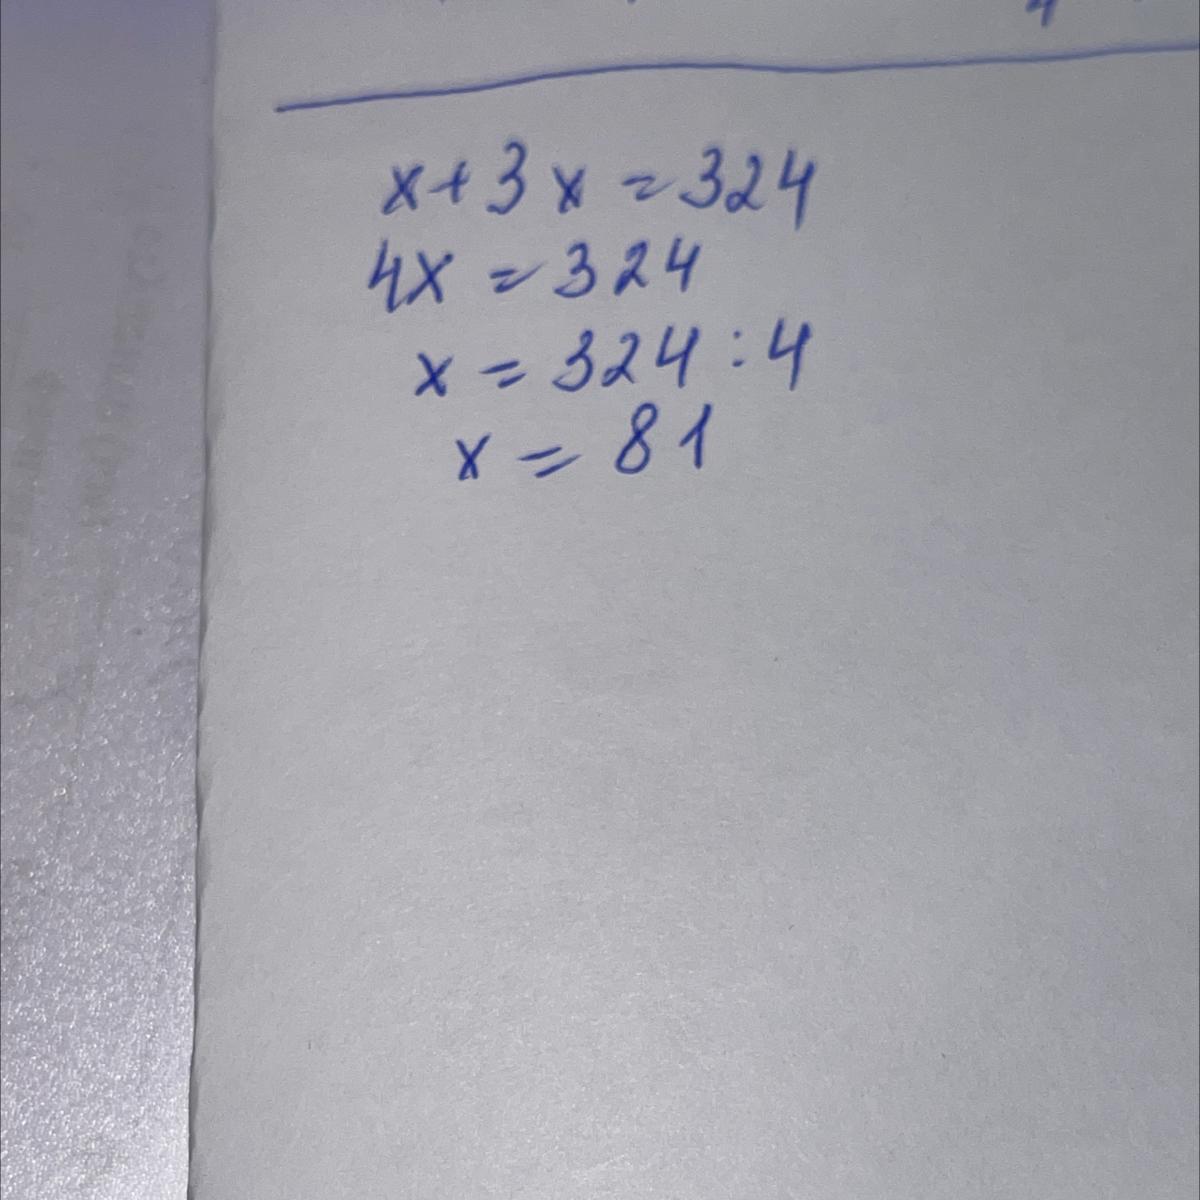 x+3x=324
4x=324
x=324:4
x=81